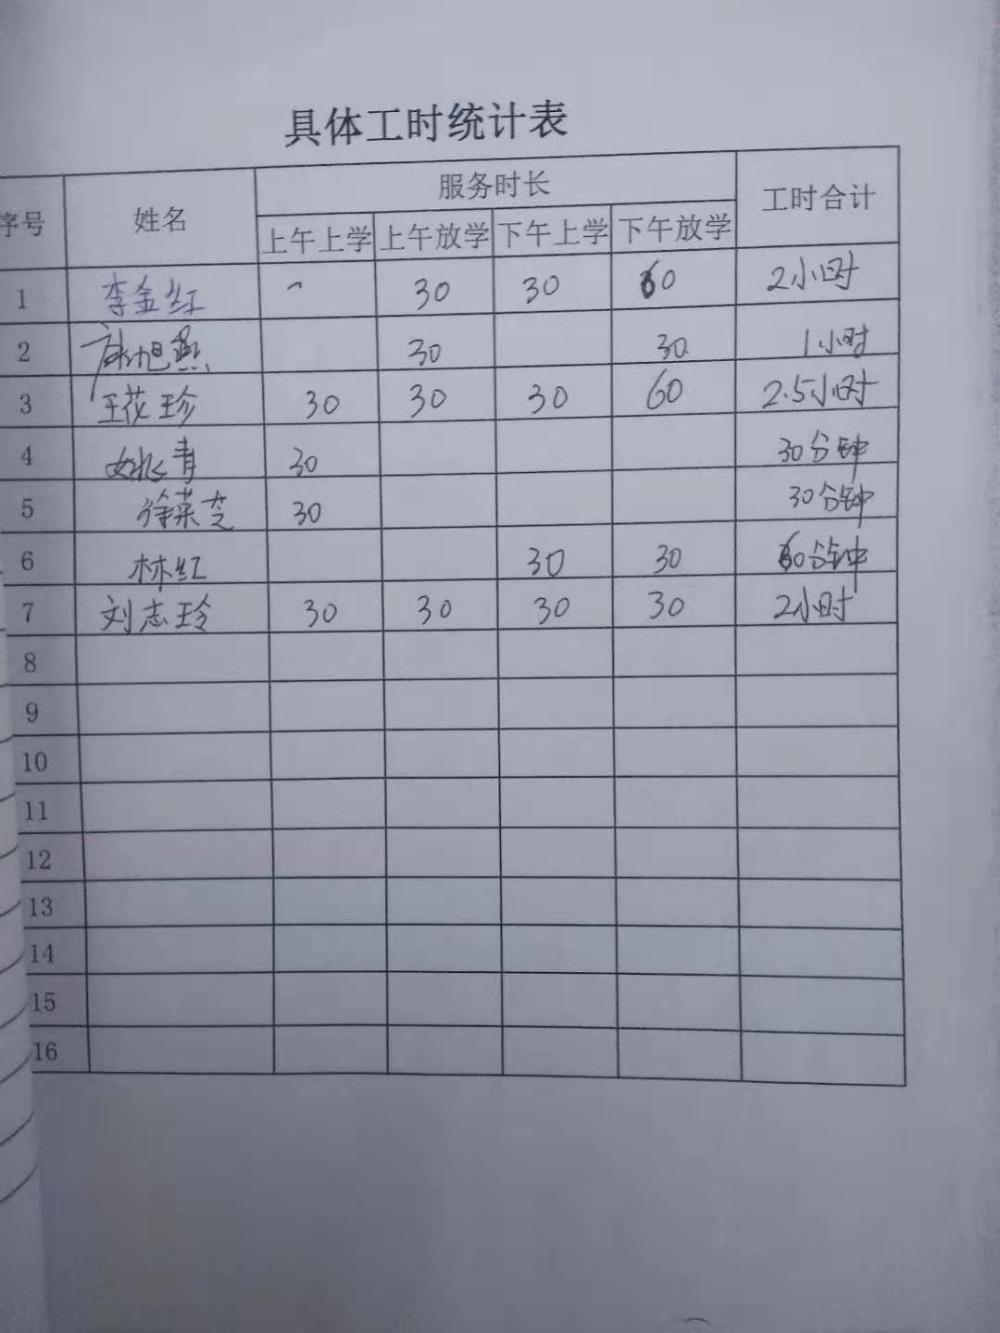 具体工时统计表
序号 姓名 服务时长 工时合计
上午上学 上午放学 下午上学 下午放学
1 李金红 - 30 30 60 2小时
2 旭燕 30 30 1小时
3 王花珍 30 30 30 60 2.5小时
4 姚青 30 30分钟
5 徐菜芝 30 30分钟
6 林红 30 30 60分钟
7 刘志玲 30 30 30 30 2小时
8
9
10
11
12
13
14
15
16